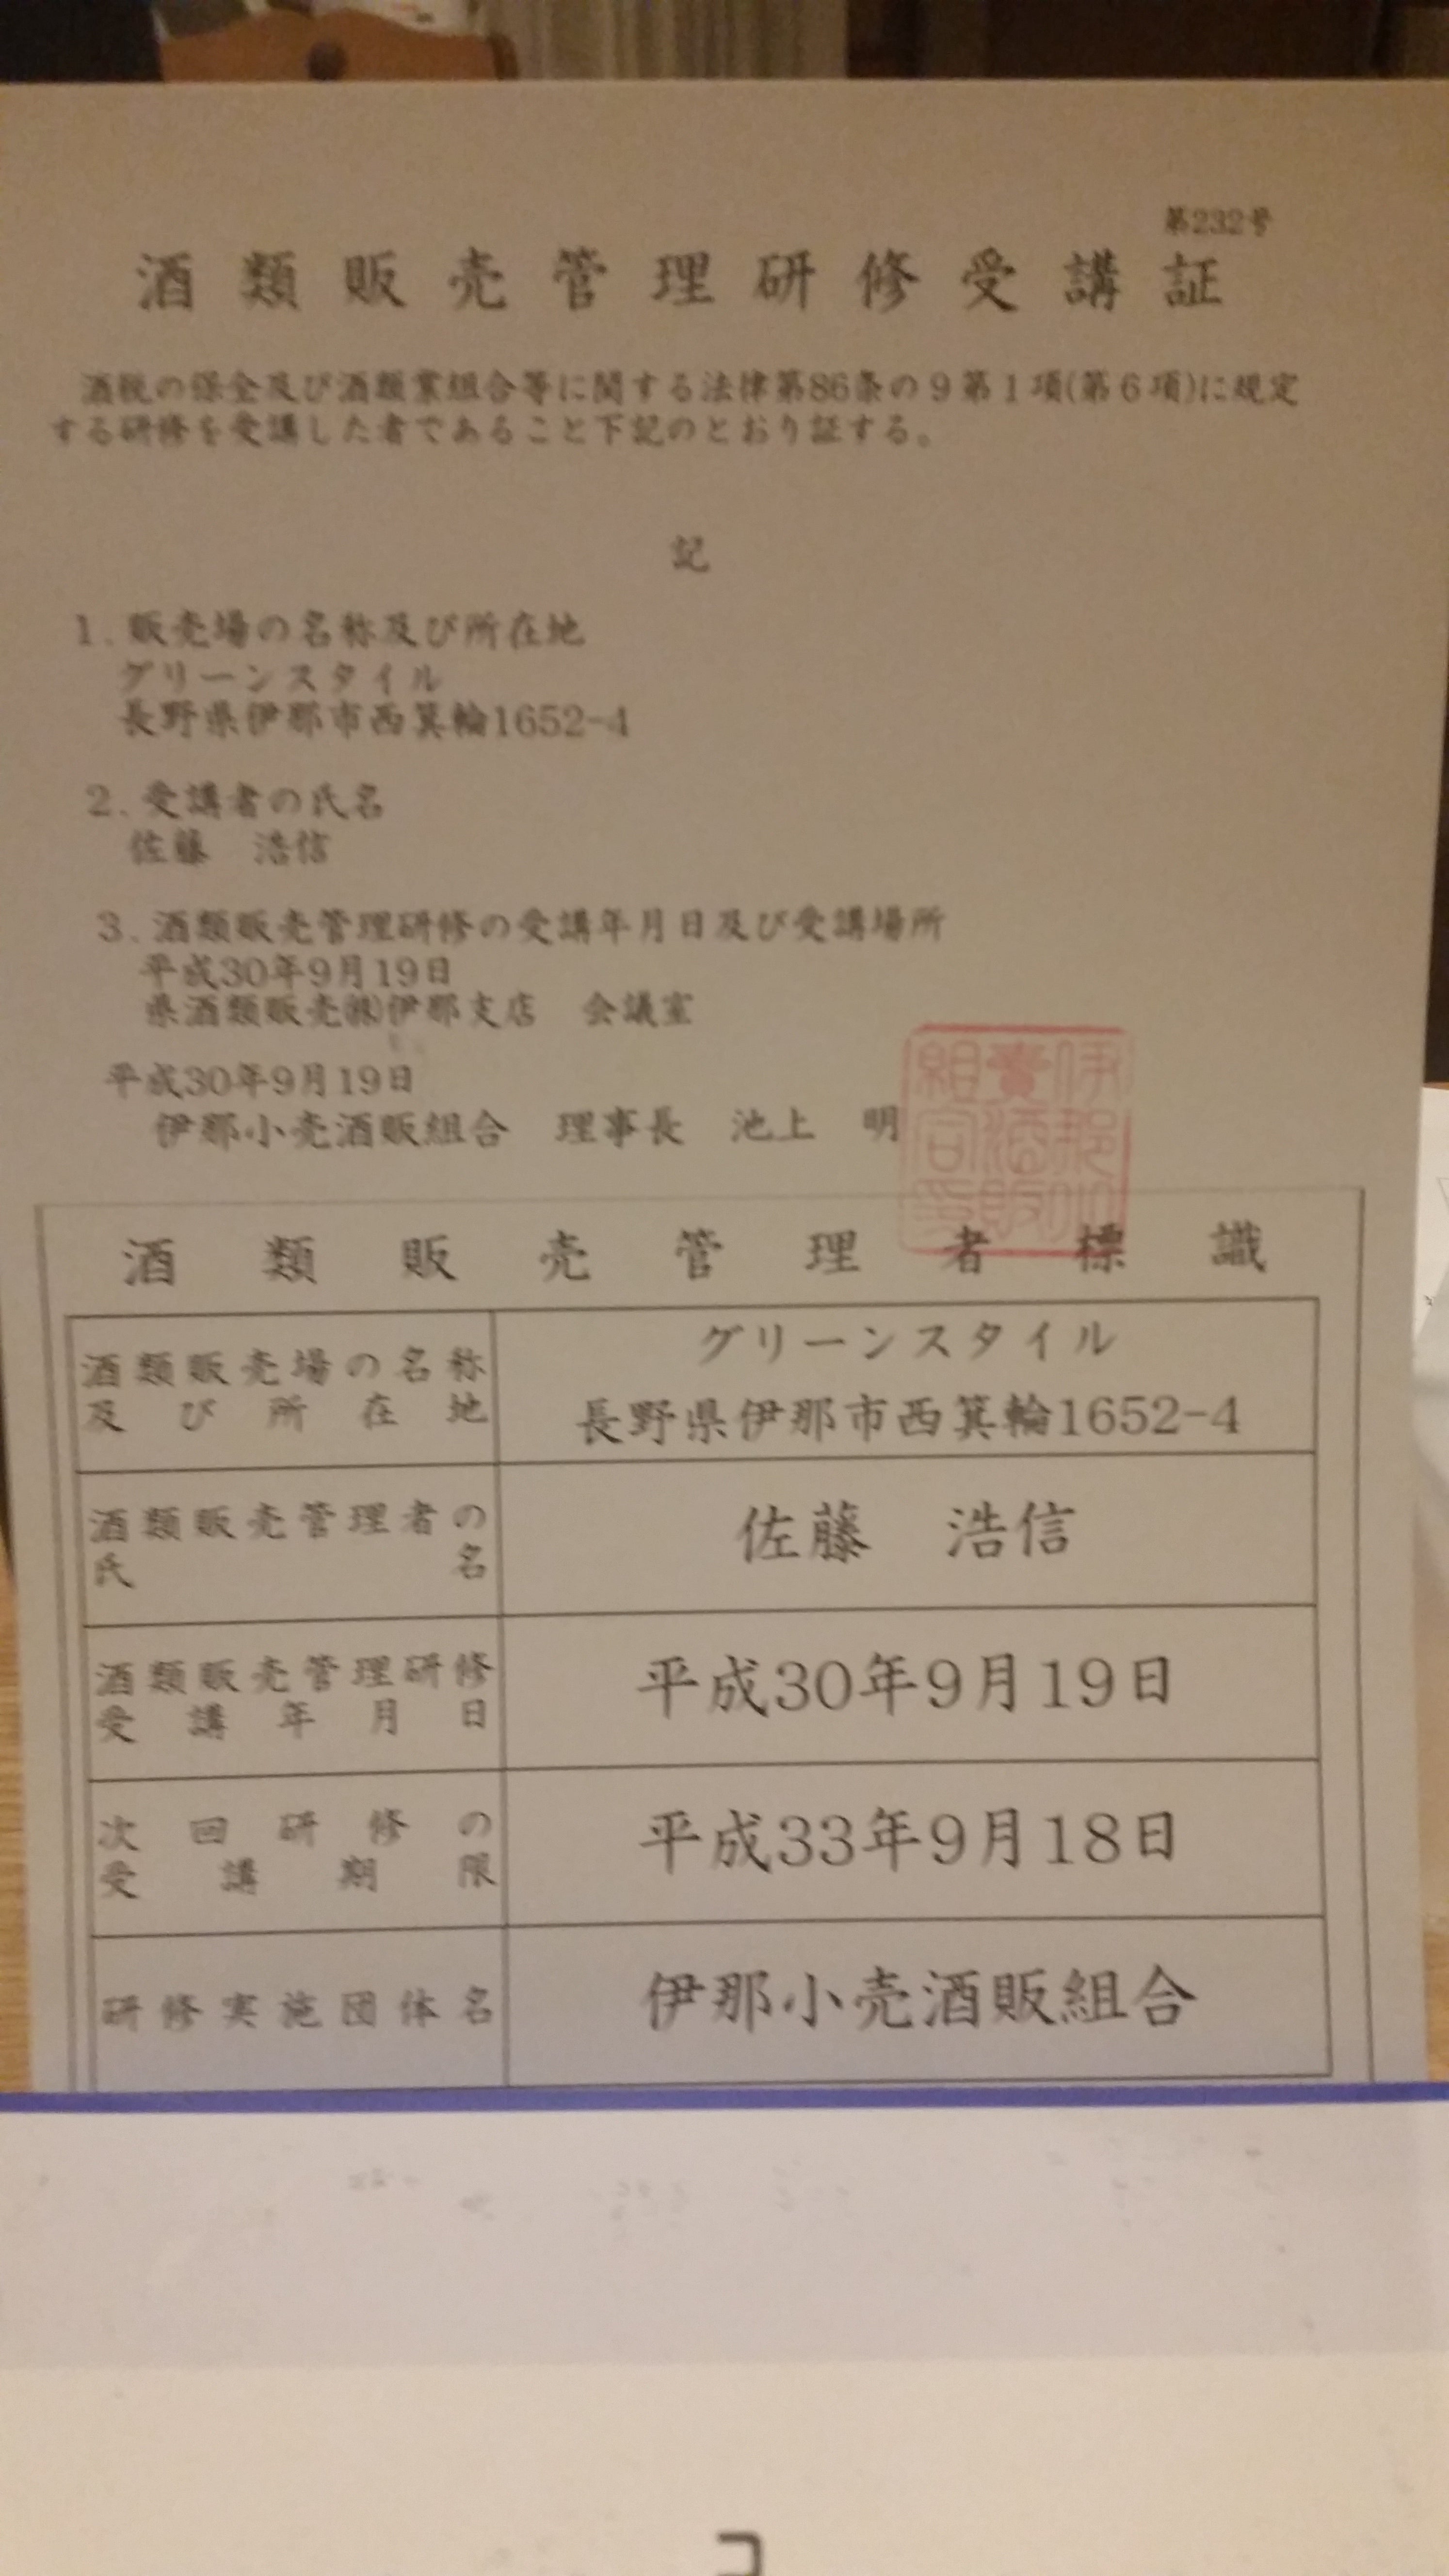 第232号
酒類販売管理研修受講証
酒税の保全及び酒類業組合等に関する法律第86条の9第1項(第6項)に規定
する研修を受講した者であること下記のとおり証する。
記
1.販売場の名称及び所在地
グリーンスタイル
長野県伊那市西箕輪1652-4
2.受講者の氏名
佐藤 浩信
3.酒類販売管理研修の受講年月日及び受講場所
平成30年9月19日
県酒類販売㈱伊那支店 会議室
平成30年9月19日
伊那小売酒販組合 理事長 池上 明
酒類販売管理者標識
酒類販売場の名称
及び所在地
グリーンスタイル
長野県伊那市西箕輪1652-4
酒類販売管理者の
氏名
佐藤 浩信
酒類販売管理研修
受講年月日
平成30年9月19日
次回研修の
受講期限
平成33年9月18日
研修実施団体名
伊那小売酒販組合